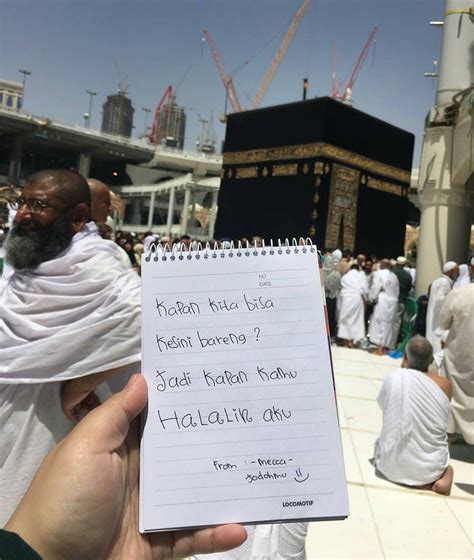 NO
DATE
Kapan kita bisa
kesini bareng ?
Jadi kapan kamu
Halalin aku
From : - mecca -
Jodohmu
LOCOMOTIF